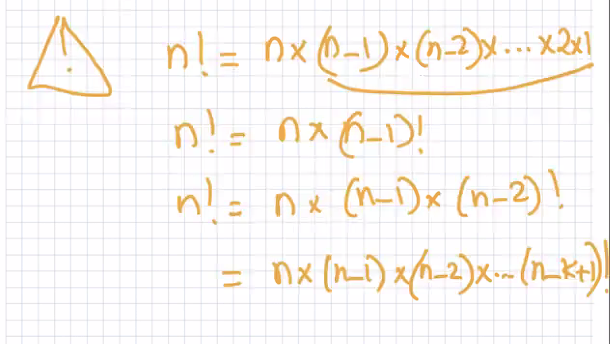 !
n! = n×(n-1)×(n-2)×...×2×1
n! = n×(n-1)!
n! = n×(n-1)×(n-2)!
= n×(n-1)×(n-2)×...(n-k+1)!